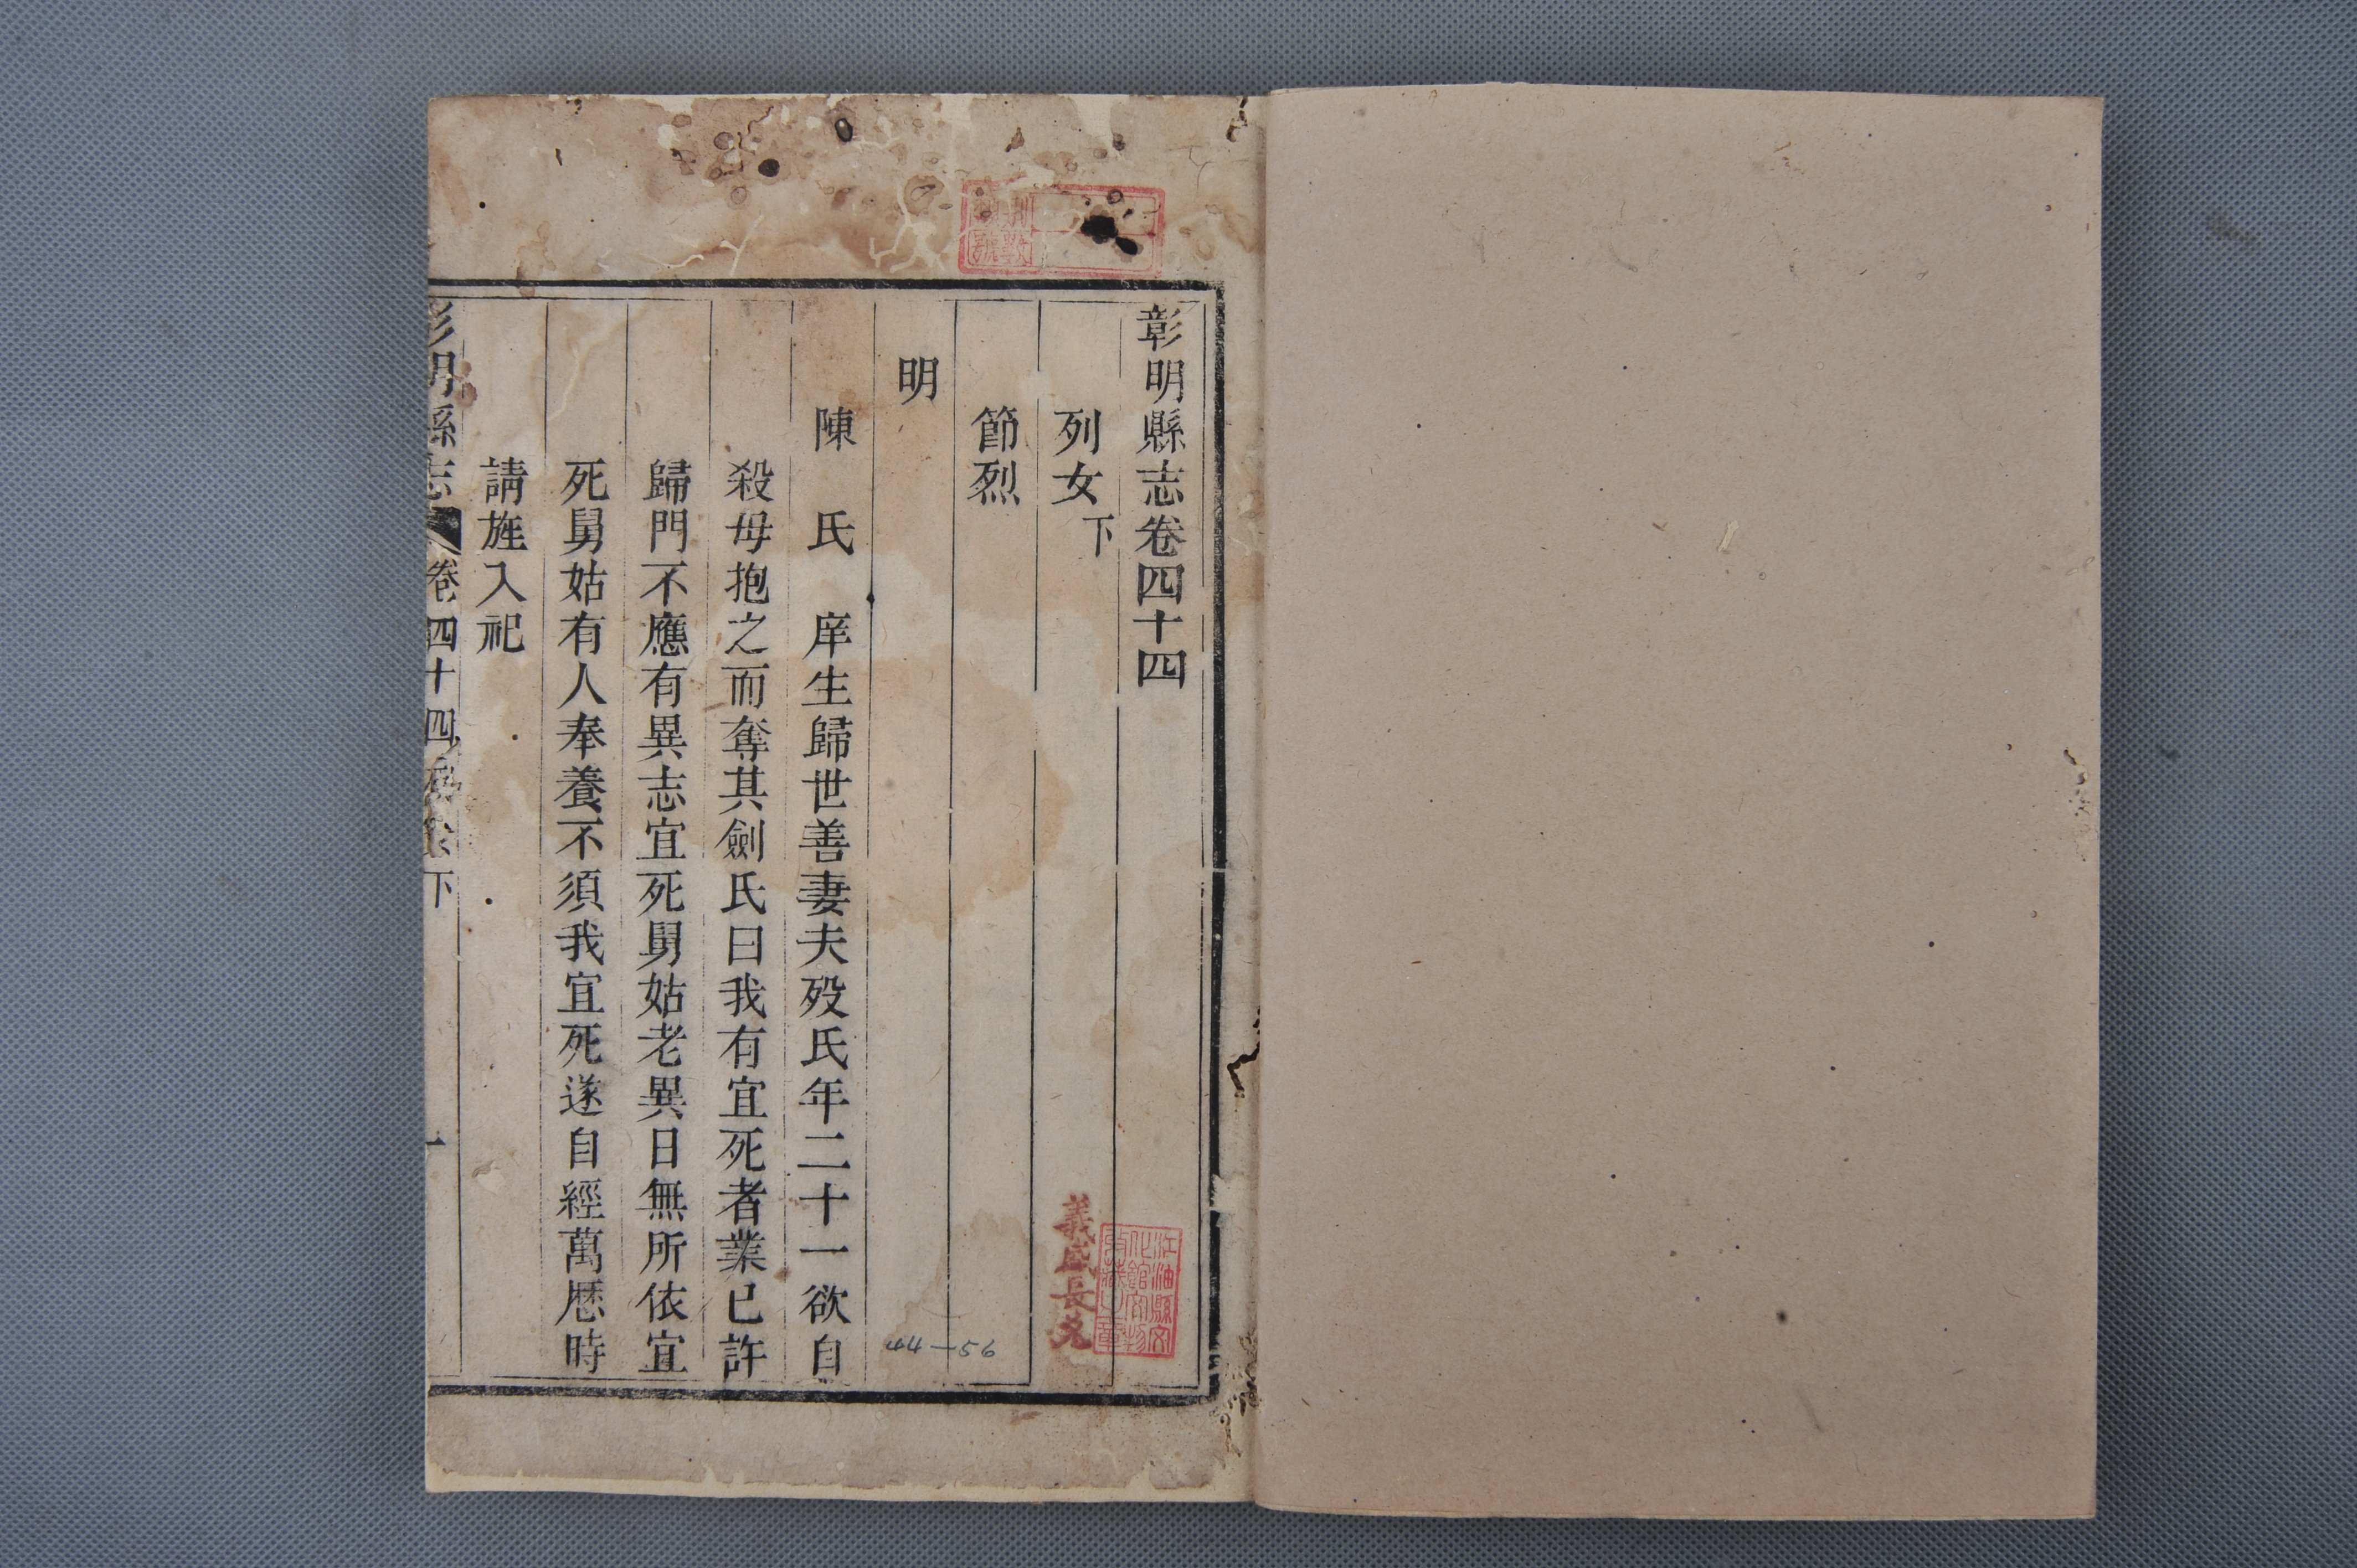 彰明縣志卷四十四
列女下
節烈
明
陳氏 庠生歸世善妻夫歿氏年二十一欲自
殺母抱之而奪其劍氏曰我有宜死者業已許
歸門不應有異志宜死舅姑老異日無所依宜
死舅姑有人奉養不須我宜死遂自經萬厯時
請旌入祀
彰明縣志 卷四十四 列女下 一
義盛長
江油縣文化館文物
44—56